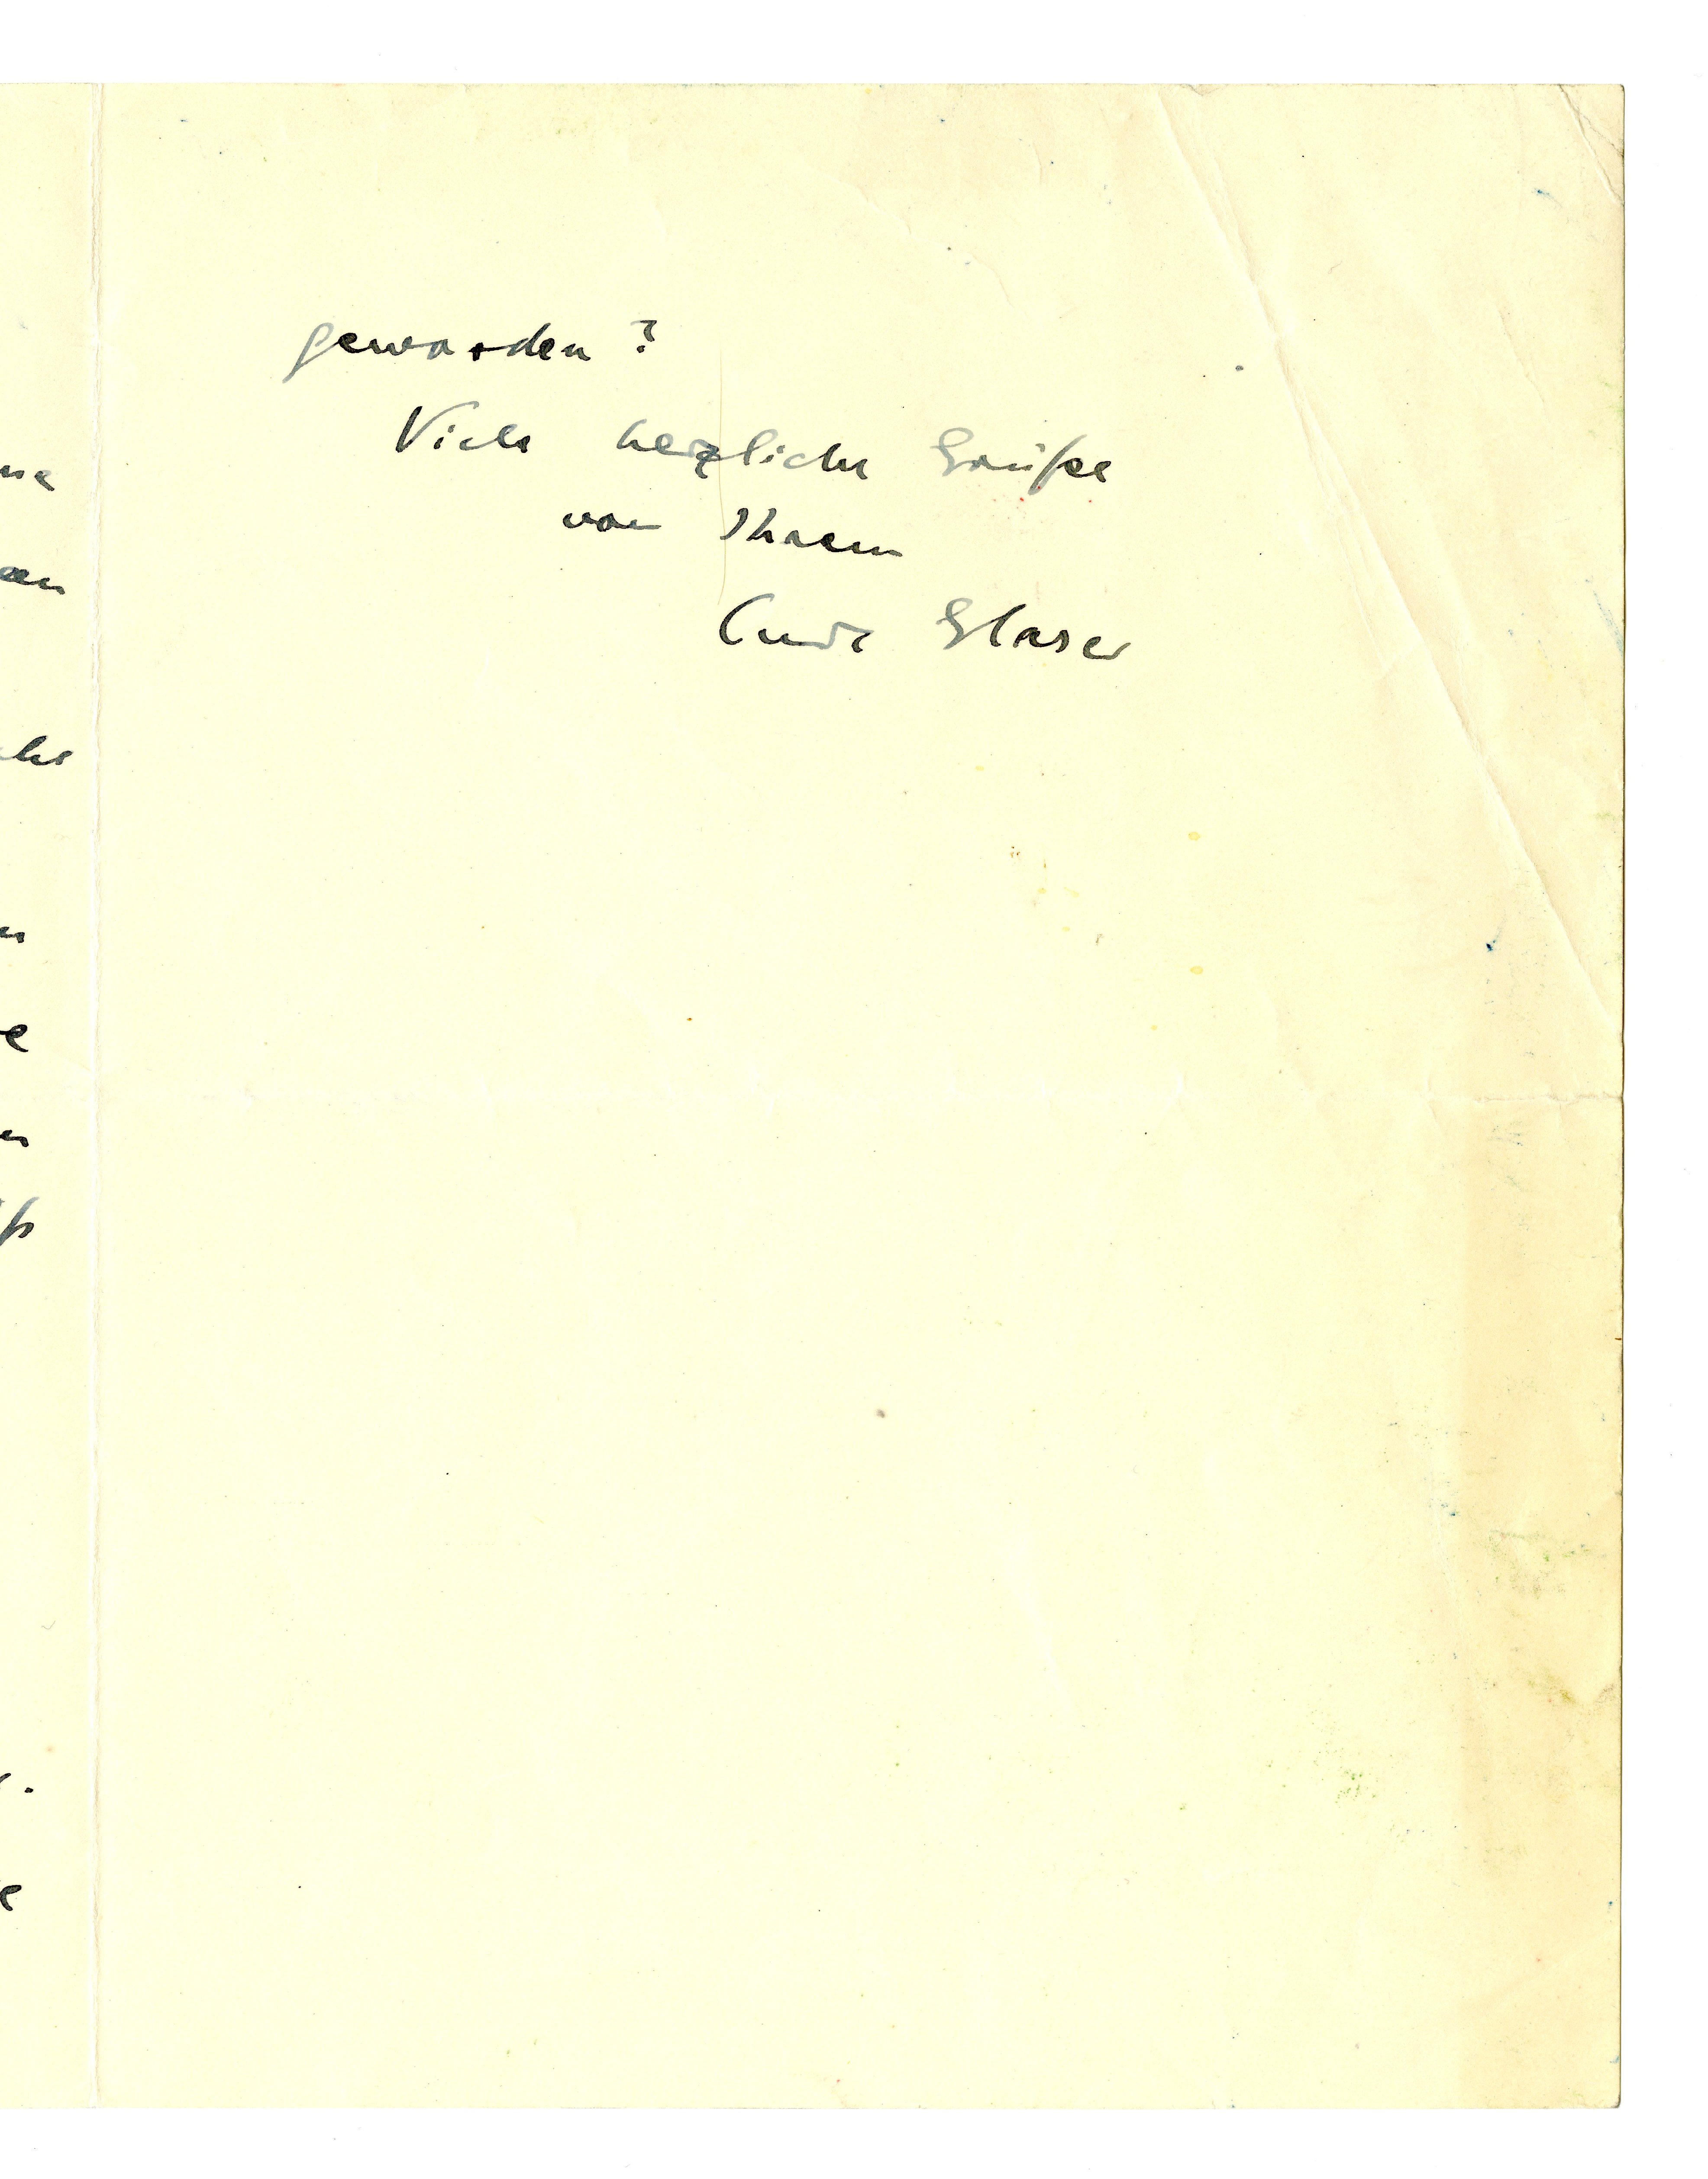 geworden?
Viele herzliche Grüße
von Ihrem
Curt Glaser